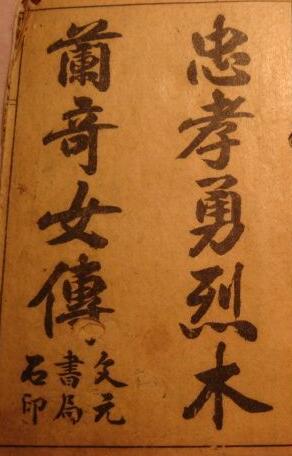 忠孝勇烈木
蘭奇女傳
文元
書局
石印